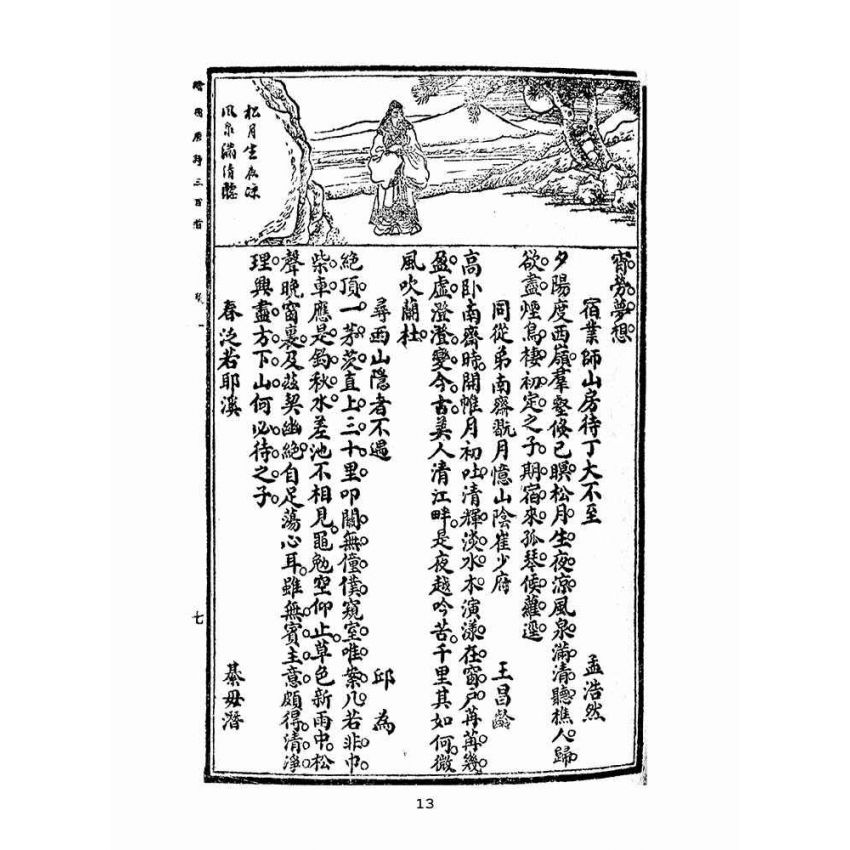 松月生夜涼
風泉滿清聽
宵勞夢想。
宿業師山房待丁大不至 孟浩然
夕陽度西嶺。羣壑倐已暝。松月生夜涼。風泉滿清聽。樵人歸
欲盡。煙鳥棲初定。之子期宿來。孤琴候蘿逕。
同從弟南齋翫月憶山陰崔少府 王昌齡
高卧南齋時。開帷月初吐。清輝淡水木。演漾在窗戶。苒苒幾
盈虛。澄澄變今古。美人清江畔。是夜越吟苦。千里其如何。微
風吹蘭杜。
尋西山隱者不遇 邱為
絕頂一茅茨。直上三十里。叩關無僮僕。窺室唯案几。若非巾
柴車。應是釣秋水。差池不相見。黽勉空仰止。草色新雨中。松
聲晚窗裏。及茲契幽絕。自足蕩心耳。雖無賓主意。頗得清淨
理。興盡方下山。何必待之子。
春泛若耶溪 綦毋潛
繪圖唐詩三百首 卷一 七
13